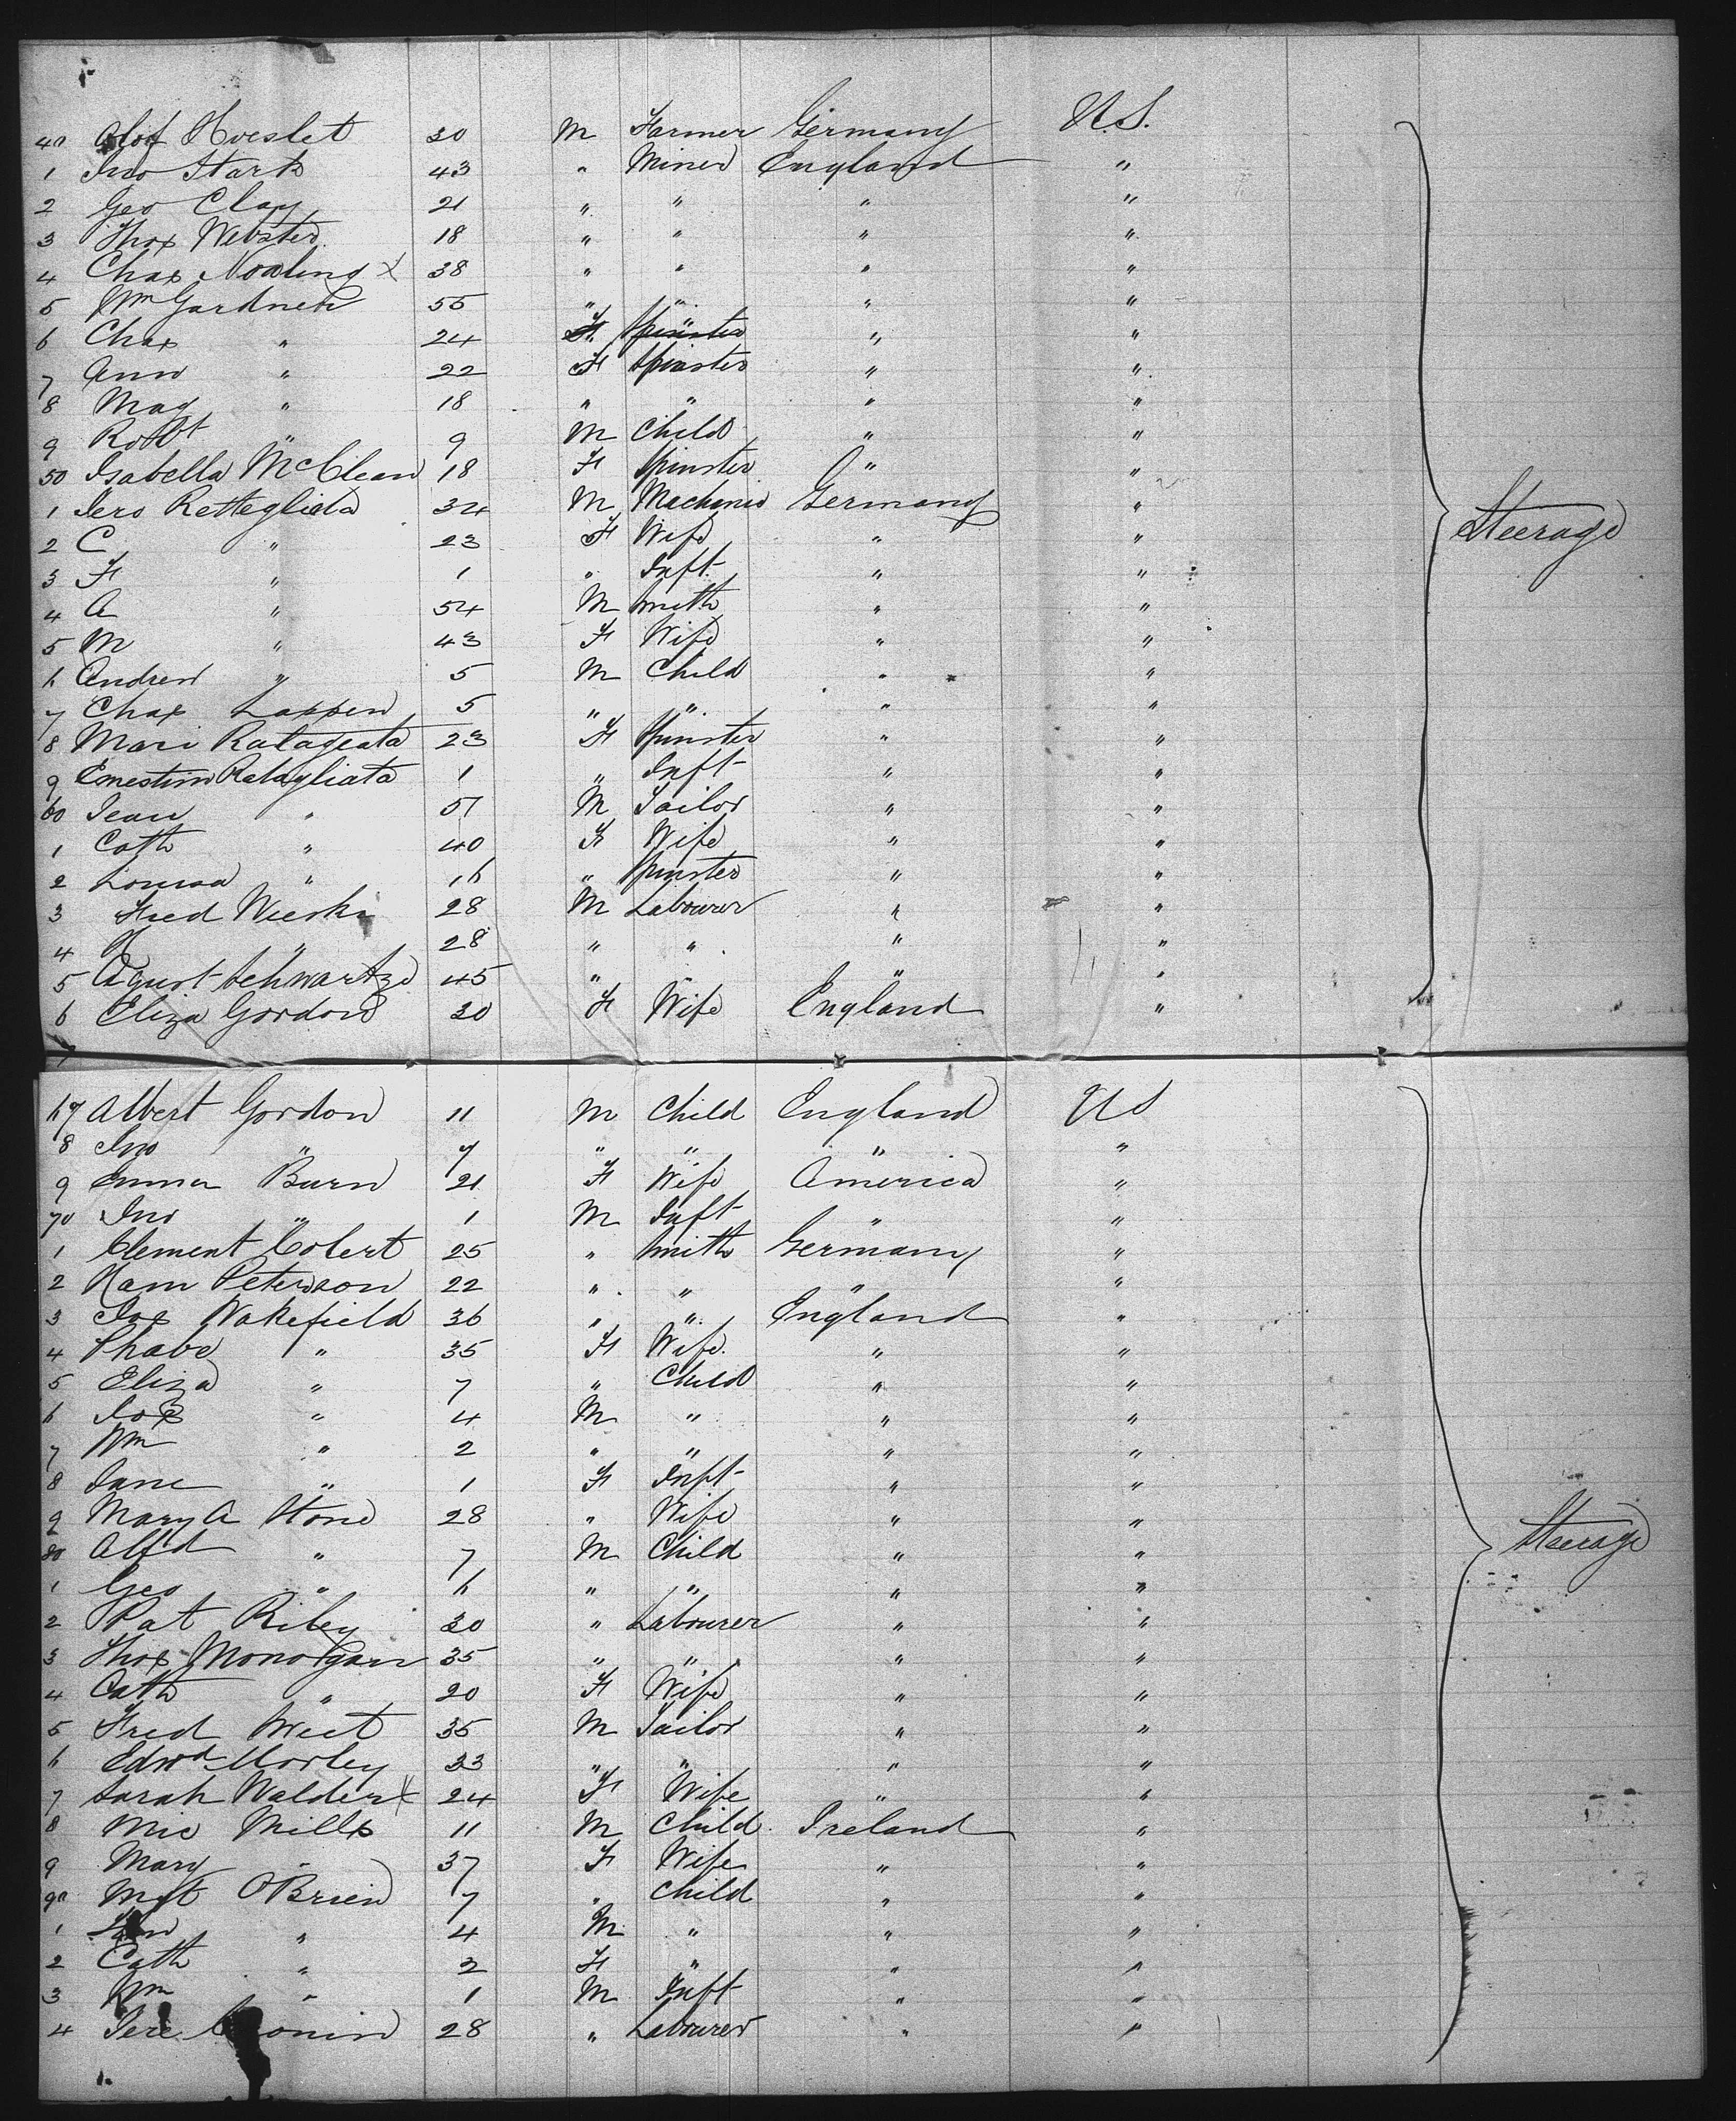 40 Olof Hoeslet 30 M Farmer Germany U.S.
1 Jno Stark 43 " Miner England "
2 Geo Clay 21 " " " "
3 Thos Webster 18 " " " "
4 Chas Nowling x 38 " " " "
5 Wm Gardner 55 " " " "
6 Chas " 24 " " "
7 Ann " 22 F Spinster " "
8 Mag " 18 " " " "
9 Robt " 9 M Child " "
50 Isabella McClean 18 F Spinster " "
1 Jero Retteglieta 34 M Mechanic Germany "
2 C " 23 F Wife " "
3 F " 1 " Inft " "
4 A " 54 M Smith " "
5 M " 43 F Wife " "
6 Andrew " 5 M Child " "
7 Chas Lappen 5 " " " "
8 Mari Ratageata 23 F Spinster " "
9 Ernestine Ratagliata 1 " Inft " "
60 Jean " 51 M Tailor " "
1 Cath " 40 F Wife " "
2 Louisa " 16 " Spinster " "
3 Fred Wieske 28 M Labourer " "
4 H " 28 " " " "
5 August Schwartze 45 " " " "
6 Eliza Gordon 30 F Wife England "
Steerage
7
67 Albert Gordon 11 M Child England US
8 Jno " 9 " " " "
9 Emma Burn 21 F Wife America "
70 Jno " 1 M Inft " "
1 Clement Colert 25 " Smith Germany "
2 Ham Peterson 22 " " " "
3 Jos Wakefield 36 " " England "
4 Phabe " 35 F Wife " "
5 Eliza " 7 " Child " "
6 Jos " 4 M " " "
7 Wm " 2 " " " "
8 Jane " 1 F Inft " "
9 Mary A Stone 28 " Wife " "
80 Alfd " 7 M Child " "
1 Geo " 6 " " " "
2 Pat Riley 30 " Labourer " "
3 Thos Monorgan 35 " " " "
4 Cath " 20 F Wife " "
5 Fred West 35 M Tailor " "
6 Edwd Morley 33 " " " "
7 Sarah Walder x 24 F Wife " "
8 Mic Mills 11 M Child Ireland "
9 Mary " 37 F Wife " "
90 Mgt O'Brien 7 " Child " "
1 " 4 M " " "
2 Cath " 3 F " " "
3 Wm " 1 M Inft " "
4 Jere Cronin 28 " Labourer " "
Steerage